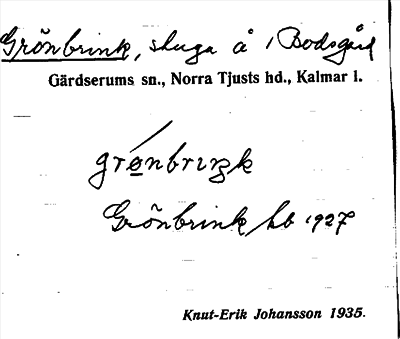 Grönbrink, stuga å / Bodsgård
Gärdserums sn., Norra Tjusts hd., Kalmar l.
grø̲nbrıŋk
Grönbrink hb 1927
Knut-Erik Johansson 1935.